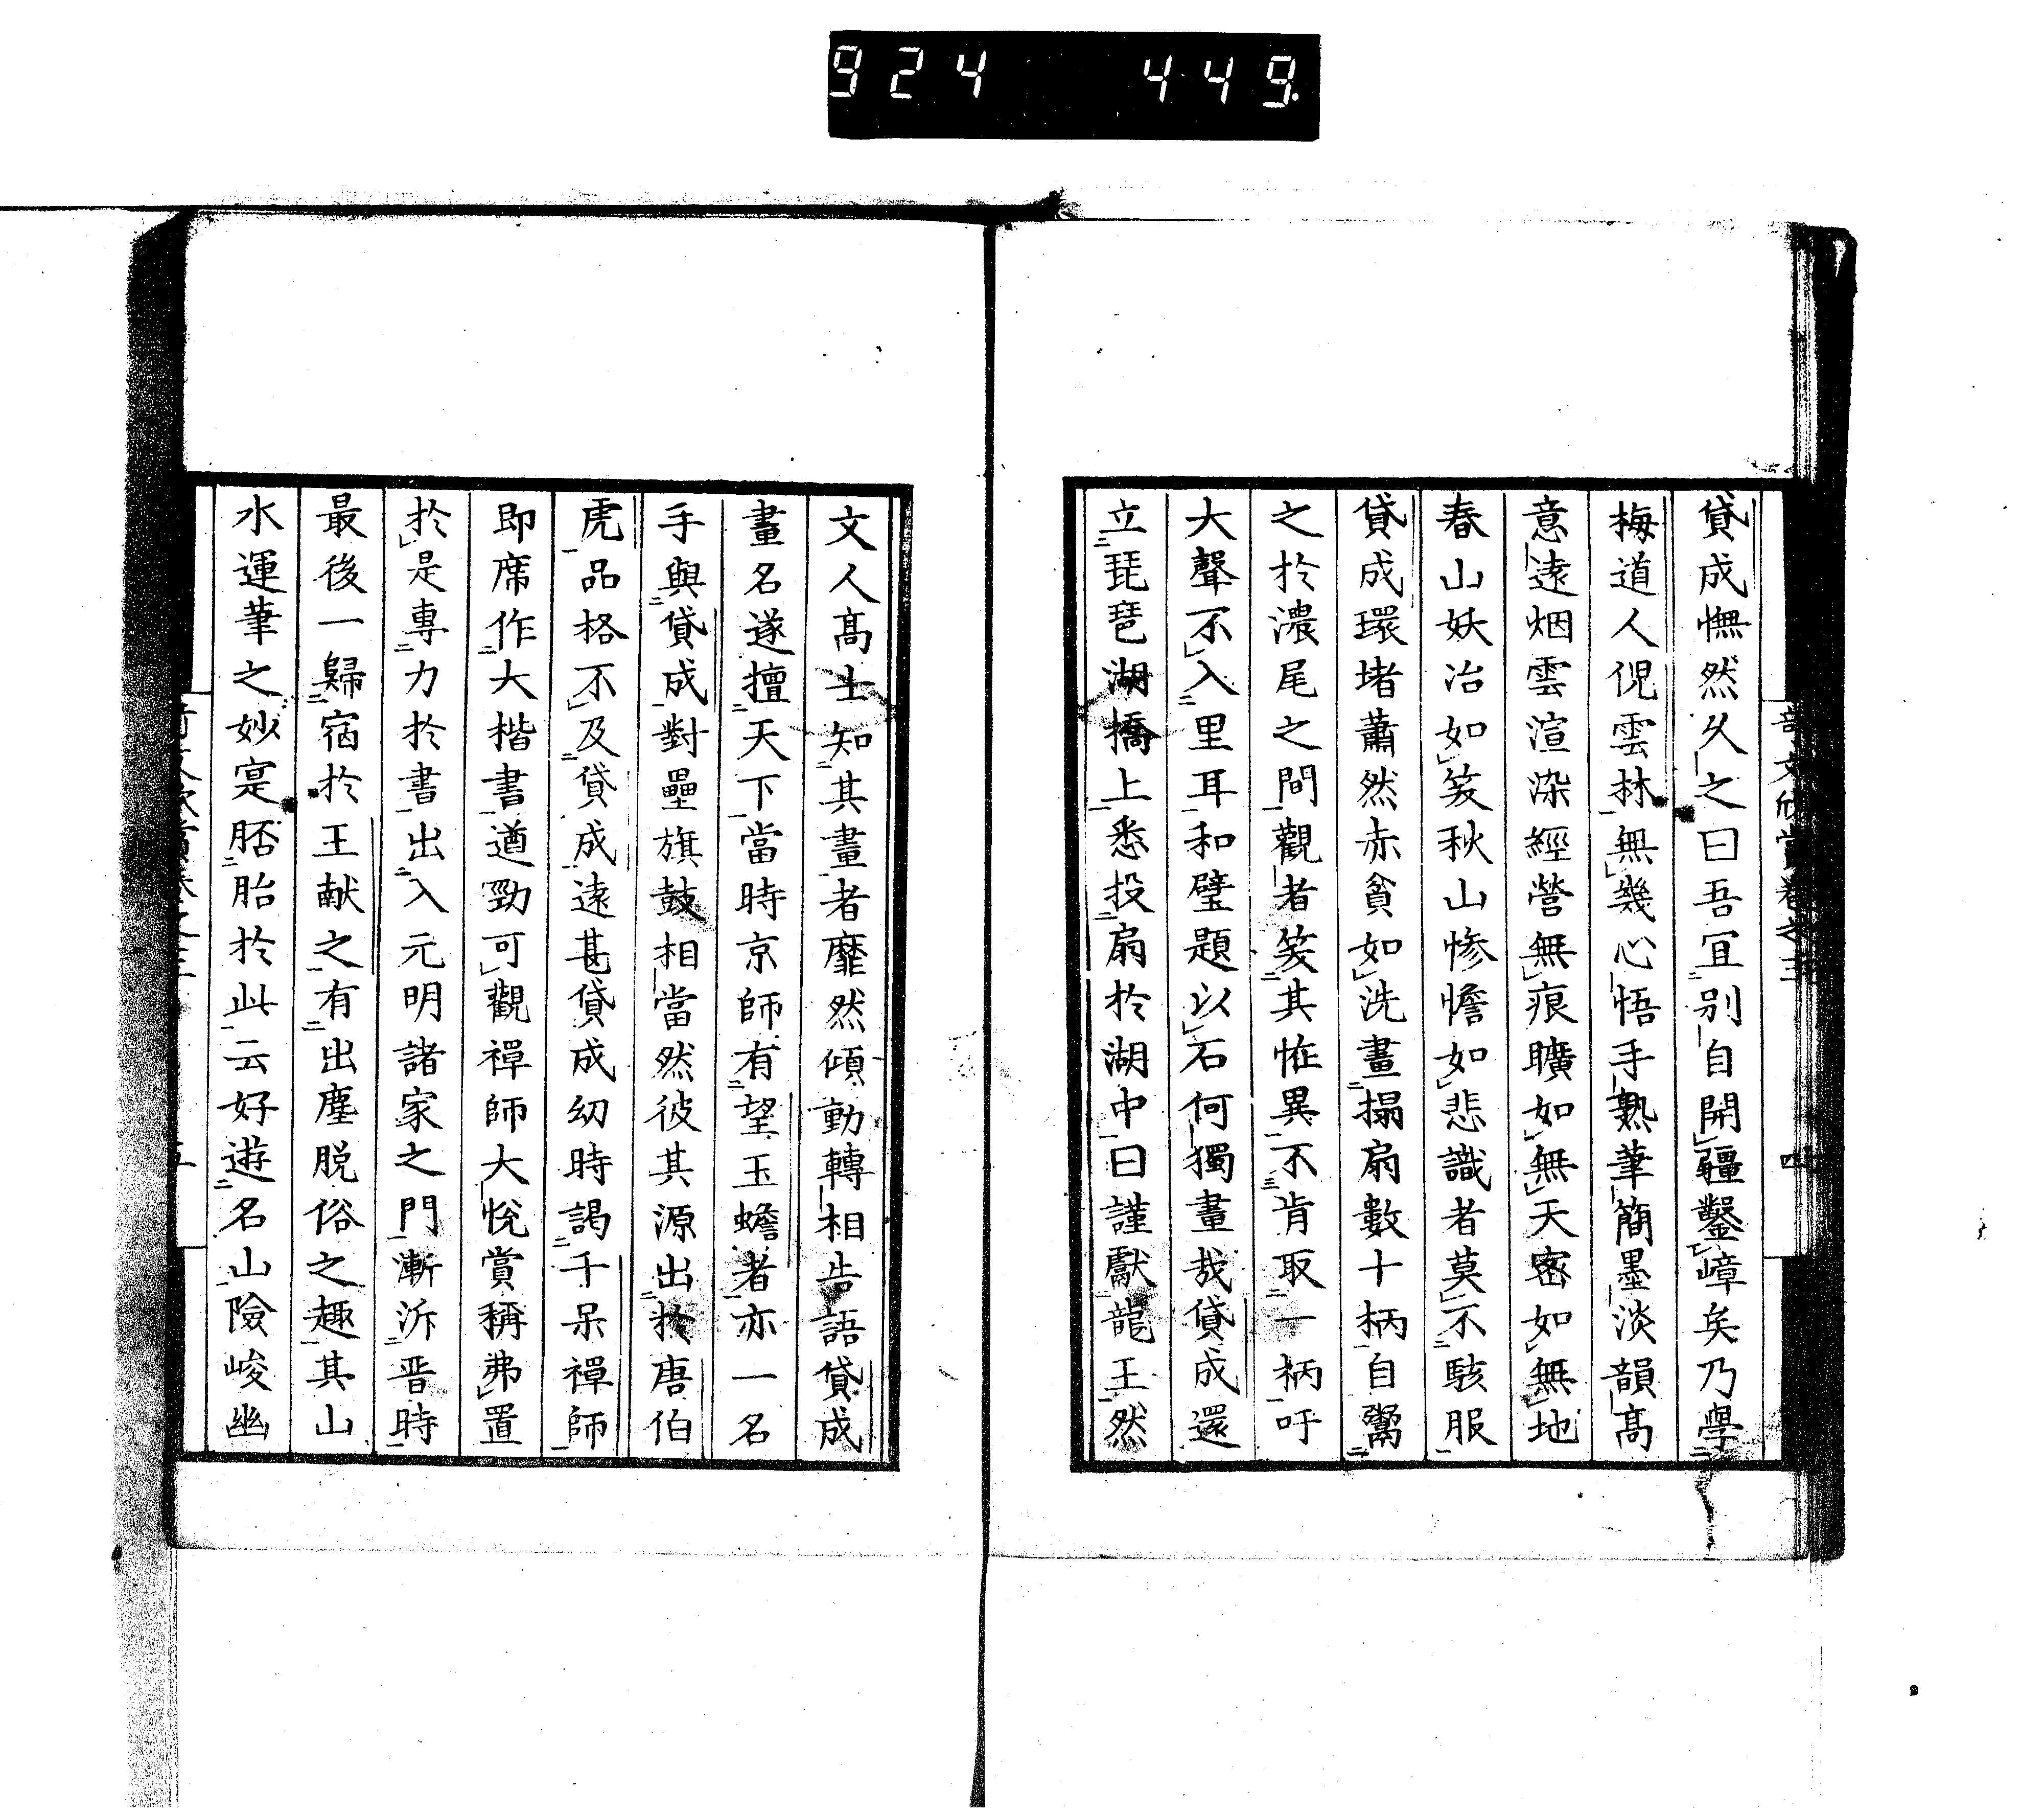 924 449.
奇文欣賞卷之三 四
貸成憮然久之曰吾宜別自開疆鑿嶂矣乃學
梅道人倪雲林無幾心悟手熟筆簡墨淡韻髙
意遠烟雲渲染經營無痕曠如無天密如無地
春山妖冶如笑秋山惨憺如悲識者莫不駭服
貸成環堵蕭然赤貧如洗畫搨扇數十柄自鬻
之扵濃尾之間觀者笑其恠異不肯取一柄吁
大聲不入里耳和璧題以石何獨畫哉貸成還
立琵琶湖橋上悉投扇扵湖中曰謹獻龍王然
文人髙士知其畫者靡然傾動轉相告語貸成
畫名遂擅天下當時京師有望玉蟾者亦一名
手與貸成對壘旗鼓相當然彼其源出扵唐伯
虎品格不及貸成遠甚貸成幼時謁千呆禪師
即席作大楷書遒勁可觀禪師大悅賞稱弗置
扵是專力扵書出入元明諸家之門漸泝晋時
最後一歸宿扵王献之有出塵脱俗之趣其山
水運筆之妙寔胚胎扵此云好遊名山險峻幽